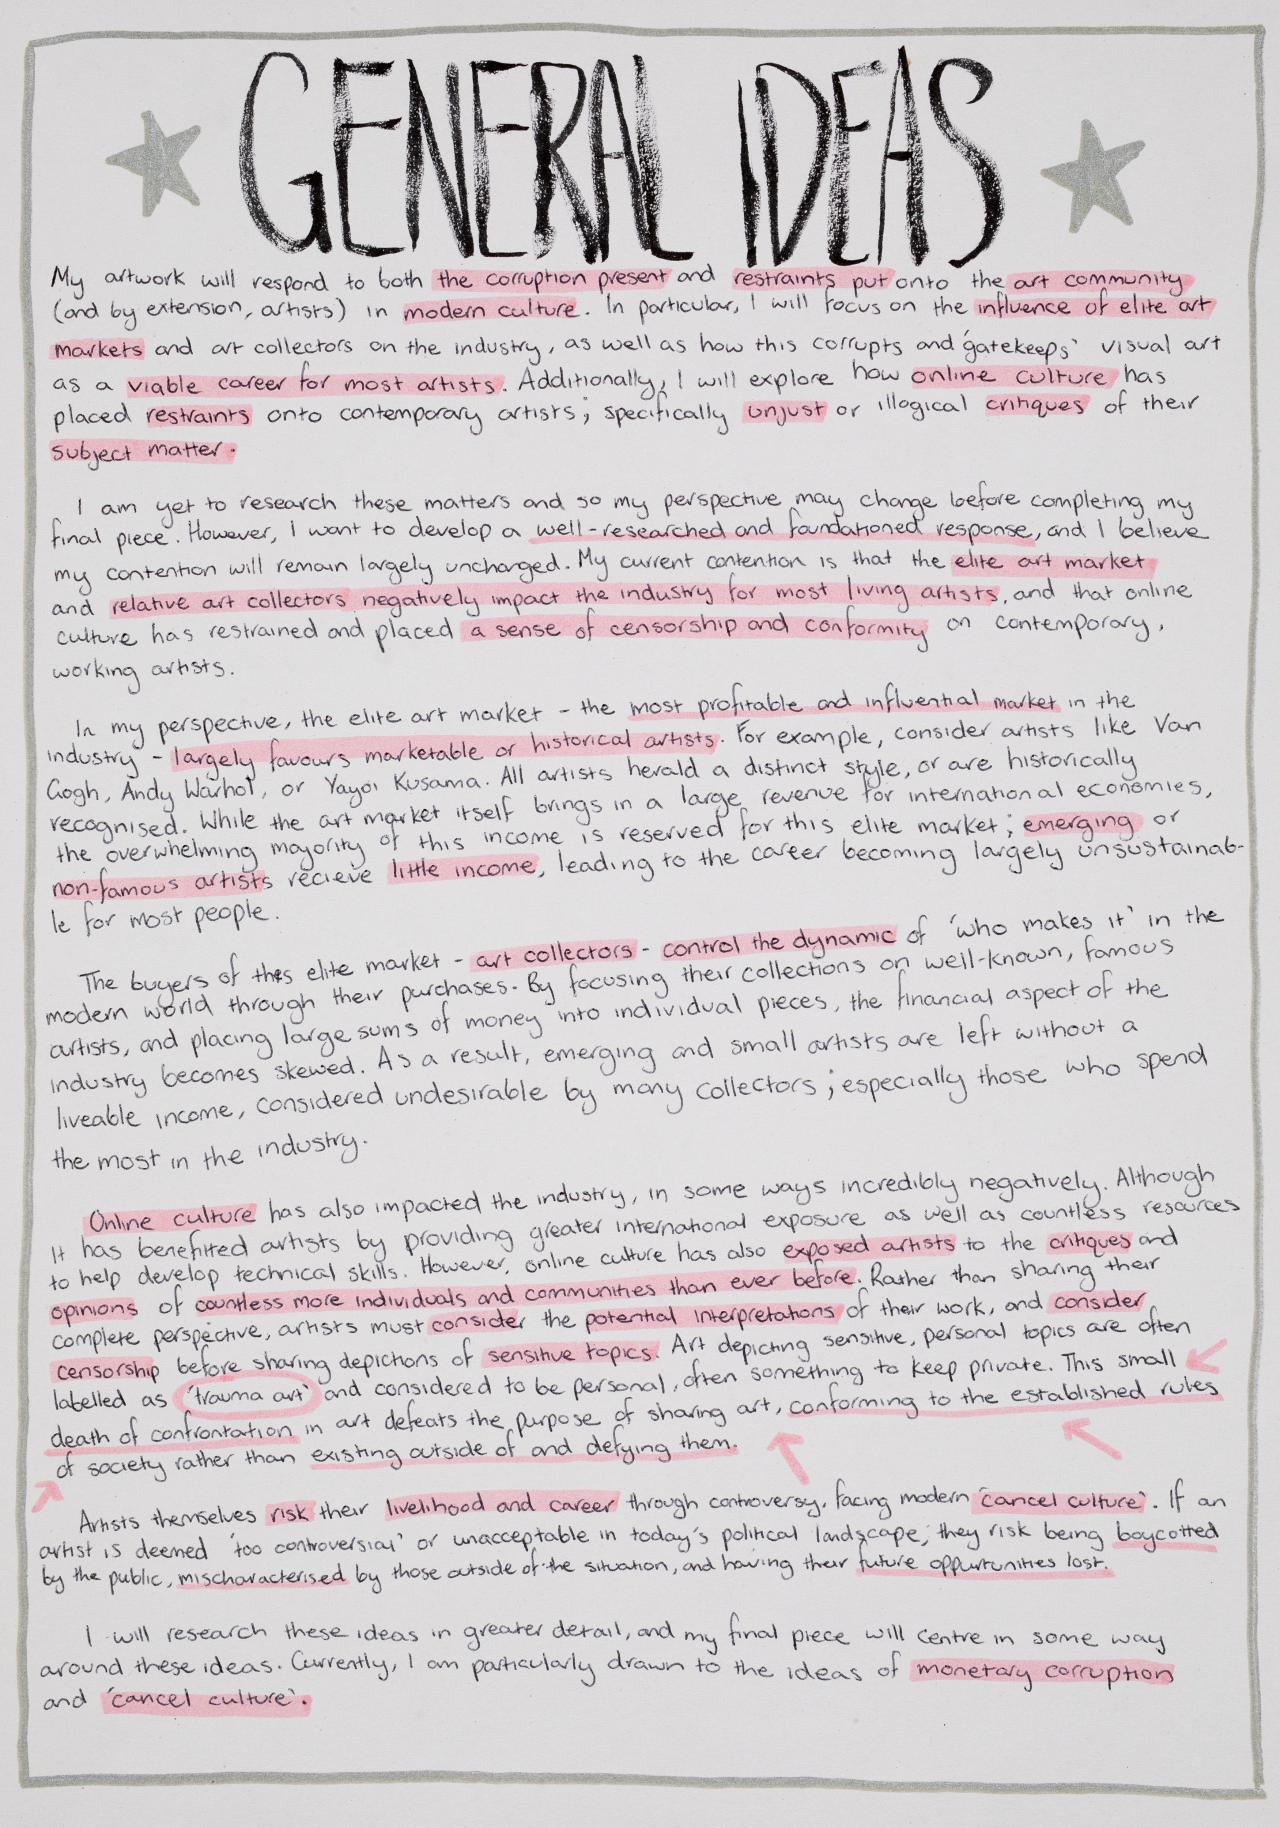 GENERAL IDEAS
My artwork will respond to both the corruption present and restraints put onto the art community
(and by extension, artists) in modern culture. In particular, I will focus on the influence of elite art
markets and art collectors on the industry, as well as how this corrupts and 'gatekeeps' visual art
as a viable career for most artists. Additionally, I will explore how online culture has
placed restraints onto contemporary artists; specifically unjust or illogical critiques of their
subject matter.
I am yet to research these matters and so my perspective may change before completing my
final piece. However, I want to develop a well-researched and foundationed response, and I believe
my contention will remain largely unchanged. My current contention is that the elite art market
and relative art collectors negatively impact the industry for most living artists, and that online
culture has restrained and placed a sense of censorship and conformity on contemporary,
working artists.
In my perspective, the elite art market - the most profitable and influential market in the
industry - largely favours marketable or historical artists. For example, consider artists like Van
Gogh, Andy Warhol, or Yayoi Kusama. All artists herald a distinct style, or are historically
recognised. While the art market itself brings in a large revenue for international economies,
the overwhelming majority of this income is reserved for this elite market; emerging or
non-famous artists recieve little income, leading to the career becoming largely unsustainab-
le for most people.
The buyers of this elite market - art collectors - control the dynamic of 'who makes it' in the
modern world through their purchases. By focusing their collections on well-known, famous
artists, and placing large sums of money into individual pieces, the financial aspect of the
industry becomes skewed. As a result, emerging and small artists are left without a
liveable income, considered undesirable by many collectors; especially those who spend
the most in the industry.
Online culture has also impacted the industry, in some ways incredibly negatively. Although
it has benefited artists by providing greater international exposure as well as countless resources
to help develop technical skills. However, online culture has also exposed artists to the critiques and
opinions of countless more individuals and communities than ever before. Rather than sharing their
complete perspective, artists must consider the potential interpretations of their work, and consider
censorship before sharing depictions of sensitive topics. Art depicting sensitive, personal topics are often
labelled as 'trauma art' and considered to be personal, often something to keep private. This small
death of confrontation in art defeats the purpose of sharing art, conforming to the established rules
of society rather than existing outside of and defying them.
Artists themselves risk their livelihood and career through controversy, facing modern 'cancel culture'. If an
artist is deemed 'too controversial' or unacceptable in today's political landscape, they risk being boycotted
by the public, mischaracterised by those outside of the situation, and having their future oppurtunities lost.
I will research these ideas in greater detail, and my final piece will centre in some way
around these ideas. Currently, I am particularly drawn to the ideas of monetary corruption
and 'cancel culture'.